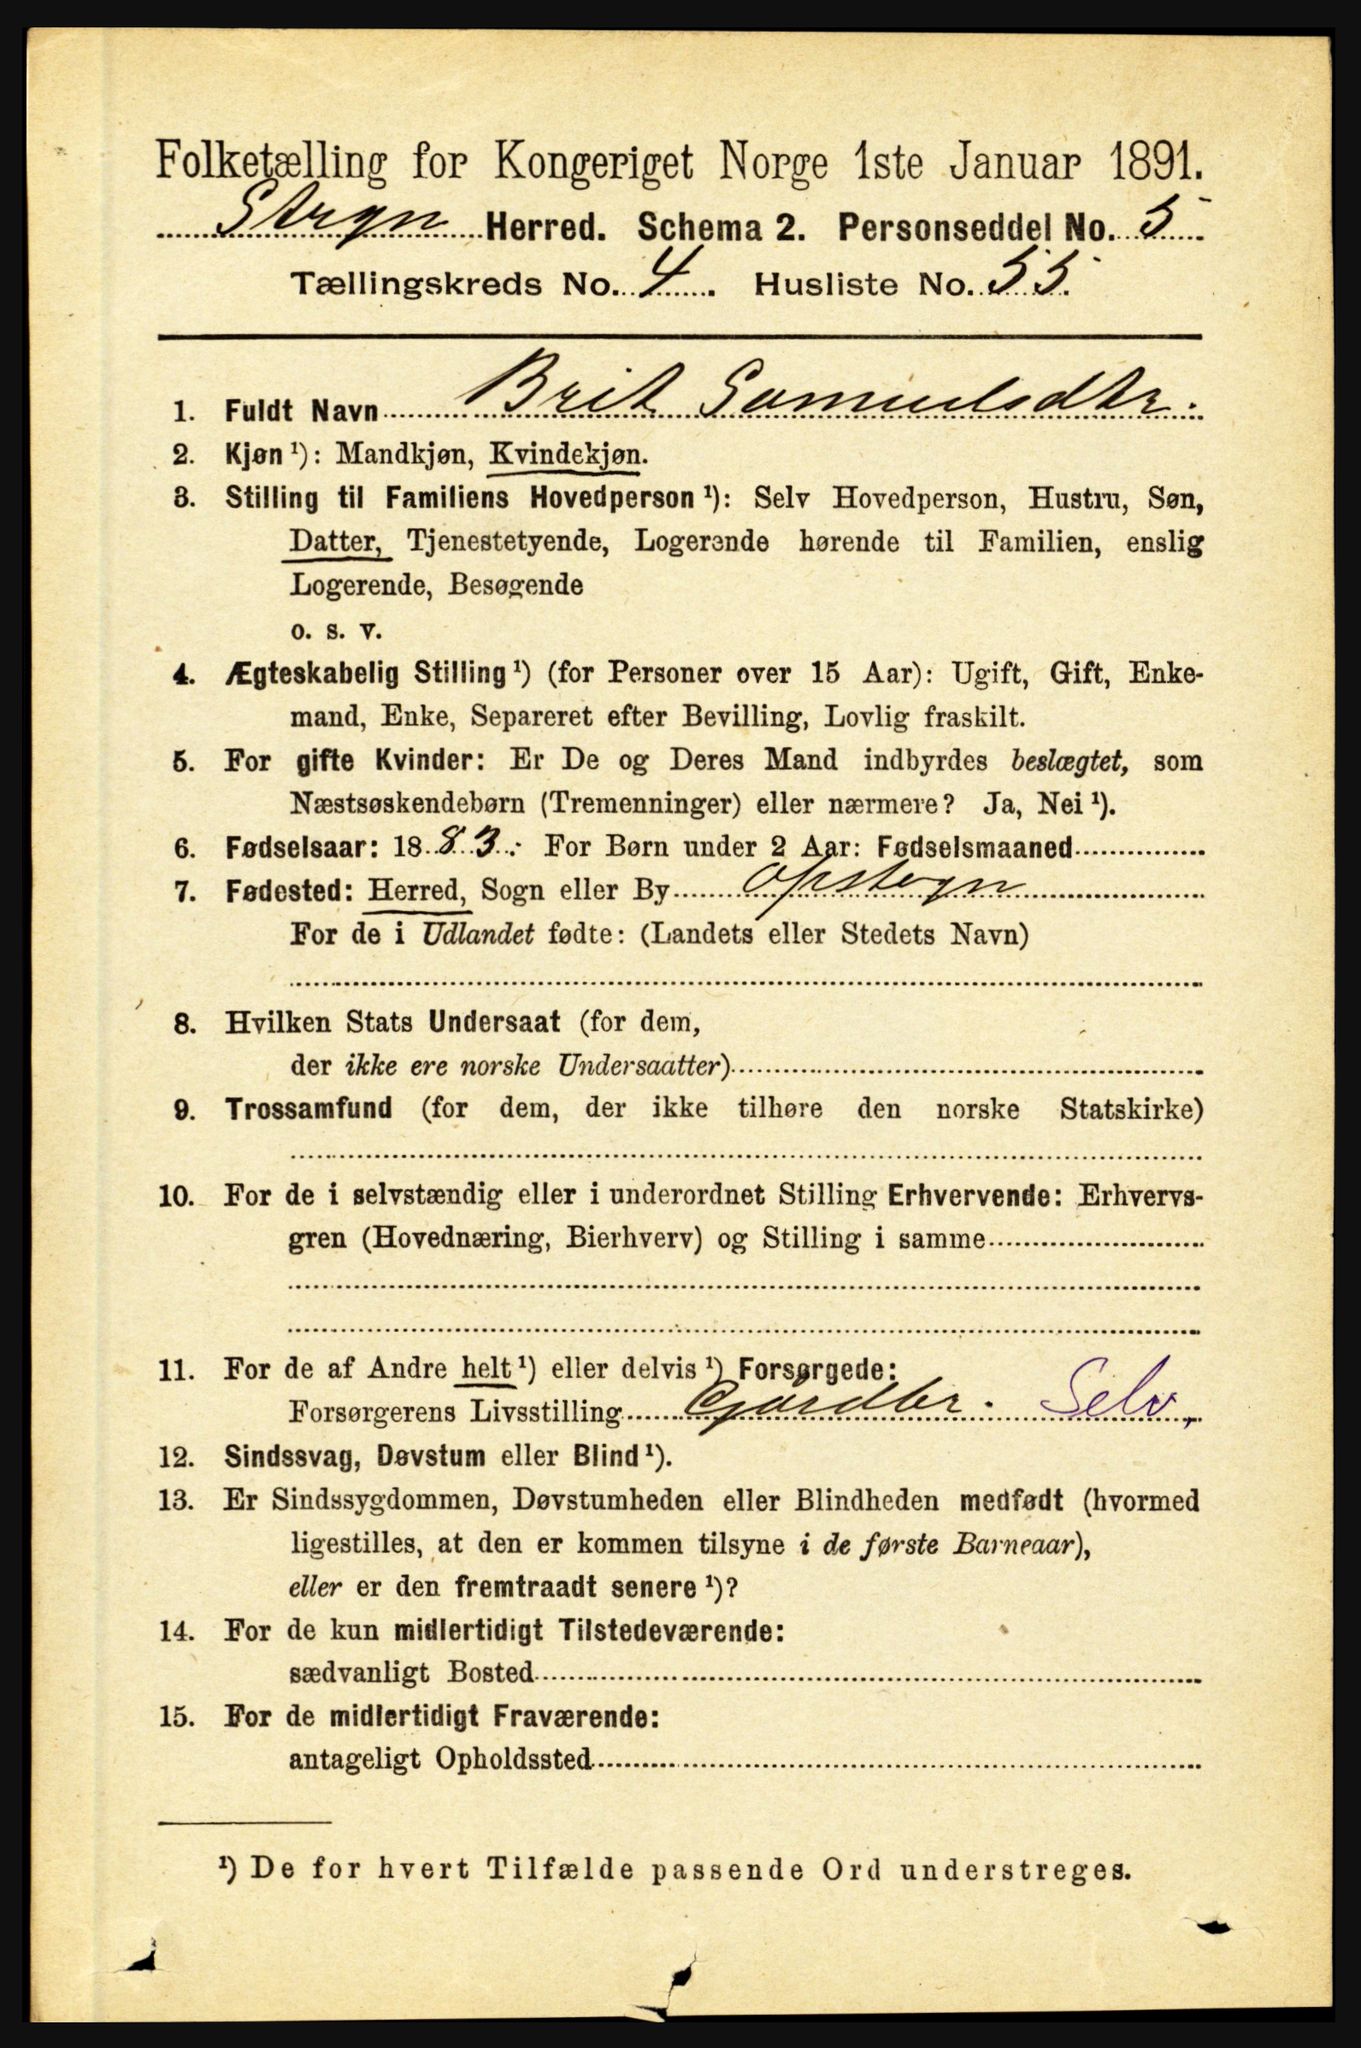 Folketælling for Kongeriget Norge 1ste Januar 1891.
Stryn Herred. Schema 2. Personseddel No. 5
Tællingskreds No. 4. Husliste No. 55.
1. Fuldt Navn Brit Samuelsdtr.
2. Kjøn¹): Mandkjøn, Kvindekjøn.
3. Stilling til Familiens Hovedperson¹): Selv Hovedperson, Hustru, Søn,
Datter, Tjenestetyende, Logerende hørende til Familien, enslig
Logerende, Besøgende
o. s. v.
4. Ægteskabelig Stilling¹) (for Personer over 15 Aar): Ugift, Gift, Enke-
mand, Enke, Separeret efter Bevilling, Lovlig fraskilt.
5. For gifte Kvinder: Er De og Deres Mand indbyrdes beslægtet, som
Næstsøskendebørn (Tremenninger) eller nærmere? Ja, Nei¹).
6. Fødselsaar: 1883. For Børn under 2 Aar: Fødselsmaaned
7. Fødested: Herred, Sogn eller By Opstryn
For de i Udlandet fødte: (Landets eller Stedets Navn)
8. Hvilken Stats Undersaat (for dem,
der ikke ere norske Undersaatter)
9. Trossamfund (for dem, der ikke tilhøre den norske Statskirke)
10. For de i selvstændig eller i underordnet Stilling Erhvervende: Erhvervs-
gren (Hovednæring, Bierhverv) og Stilling i samme
11. For de af Andre helt¹) eller delvis¹) Forsørgede:
Forsørgerens Livsstilling Gårdbr. Selv,
12. Sindssvag, Døvstum eller Blind¹).
13. Er Sindssygdommen, Døvstumheden eller Blindheden medfødt (hvormed
ligestilles, at den er kommen tilsyne i de første Barneaar),
eller er den fremtraadt senere¹)?
14. For de kun midlertidigt Tilstedeværende:
sædvanligt Bosted
15. For de midlertidigt Fraværende:
antageligt Opholdssted
¹) De for hvert Tilfælde passende Ord understreges.